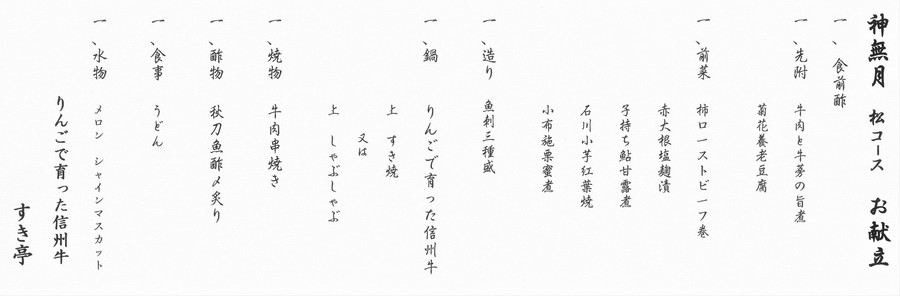 神無月 松コース お献立
一、食前酢
一、先附 牛肉と牛蒡の旨煮
菊花養老豆腐
一、前菜 柿ローストビーフ巻
赤大根塩麹漬
子持ち鮎甘露煮
石川小芋紅葉焼
小布施栗蜜煮
一、造り 魚刺三種盛
一、鍋 りんごで育った信州牛
上 すき焼
又は
上 しゃぶしゃぶ
一、焼物 牛肉串焼き
一、酢物 秋刀魚酢〆炙り
一、食事 うどん
一、水物 メロン シャインマスカット
りんごで育った信州牛
すき亭